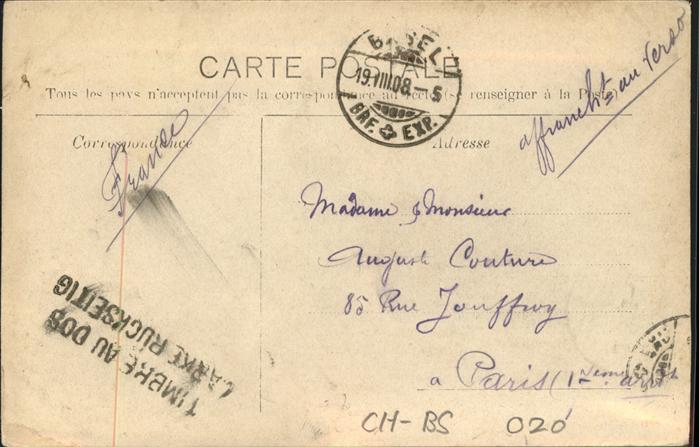 CARTE POSTALE
Tous les pays n'acceptent pas la correspondance au recto (se renseigner à la Poste)
Correspondance
Adresse
BASEL
19.VIII.08.-5
BRF. EXP.
affranchi au verso
France
Madame & Monsieur
Auguste Couture
85 Rue Jouffroy
à Paris (17ème arrt
TIMBRE AU DOS
MARKE RÜCKSEITIG
CH-BS 020